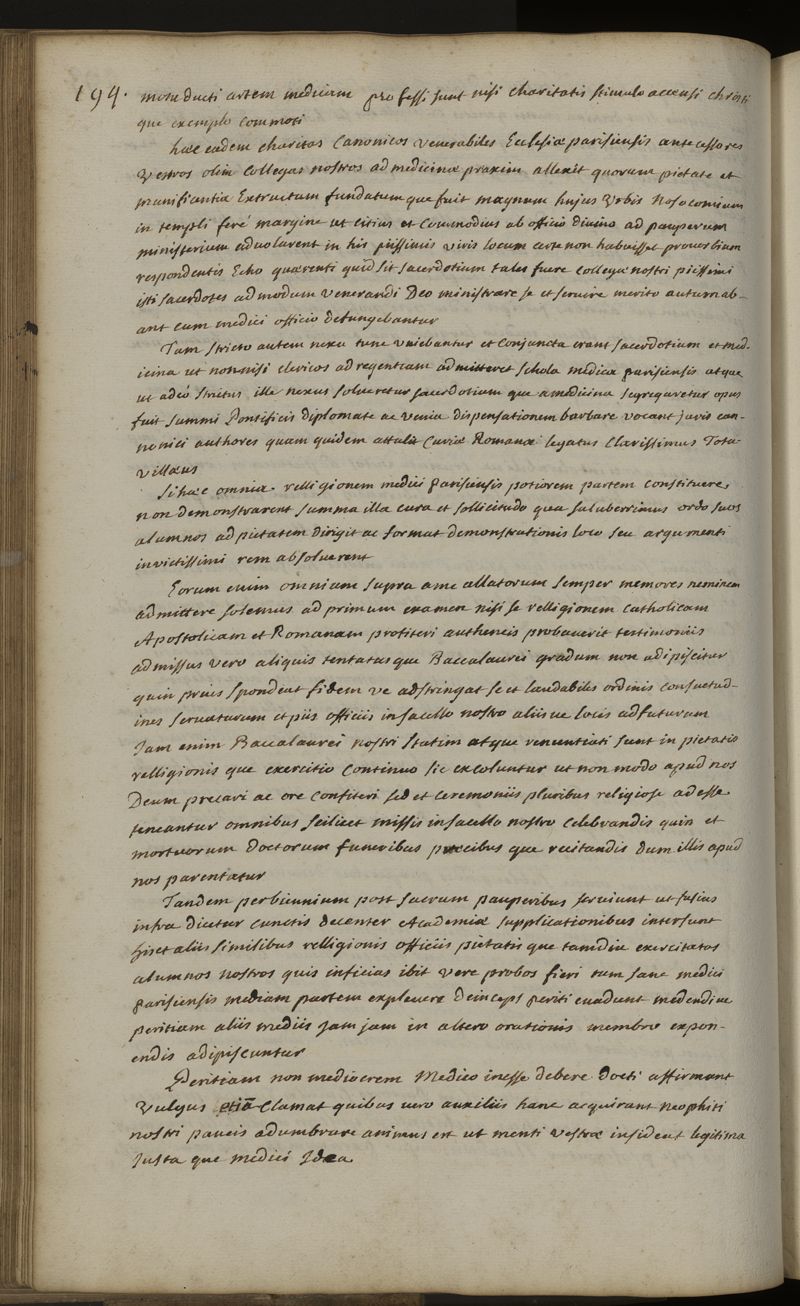 194. motu ducti artem medicam professi sunt nisi charitatis stimulo accensi christi
que exemplo commoti
hæc eadem charitas Canonicos venerabiles Ecclesiæ parisiensis antecessores
Vestros olim Collegas nostros ad medicinæ praxim allexit quorum pietate et
munificentia Extructum fundatumque fuit magnum hujus Urbis Nosocomium
in templi ferè margine ut citius et Commodius ab officio divino ad pauperum
ministerium advolarent in his piissimis viris locum certe non habuisset proverbium
respondentis Echo quærenti quid sit sacerdotium tales fuere Collegæ nostri piissimi
isti sacerdotes admodum venerandi Deo ministrare se et servire merito autumab-
ant cum medici officio defungebantur
Tam stricto autem nexu tunc uniebantur et Conjuncta erant sacerdotium et med-
icina ut nonnisi clericos ad regentiam admitteret schola medica parisiensis atque
ut adeò strictus ille nexus solveretur sacerdotium que a medicina segregaretur opus
fuit summi Pontificis diplomate ac venia dispensationem barbare vocant juris can-
nonici authores quam quidem attulit Curiæ Romanæ legatus Clarissimus Tota-
villæus
Si hæc omnia relligionem medici parisiensis potiorem partem constituere,
non demonstrarent summa illa cura et sollicitudo qua saluberrimus ordo suos
alumnos ad pietatem dirigit ac format demonstrationis loco seu argumenti
invictissimi rem absolverent
Eorum enim omnium supra a me allatorum semper memores neminem
admittere solemus ad primum examen nisi se relligionem catholicam
Apostolicam et Romanam profiteri autheneis probaverit testimoniis
admissus vero aliquis tentatusque Baccalaurei gradum non adipiscitur
quin prius spondeat fidem ve adstringat se et laudabiles ordinis consuetud-
ines servaturum et piis officiis in sacello nostro aliis ve locis adfuturum
Jam enim Baccalaurei nostri statim atque renuntiati sunt in pietatis
relligionis que exercitio continuo sic excoluntur ut non modo apud nos
Deum precari ac ore confiteri sed et ceremoniis pluribus religiose adesse
teneantur omnibus scilicet missis in sacello nostro celebrandis quin et
mortuorum Doctorum funeribus precibus que recitandis dum illis apud
nos parentatur
Tandem per biennium post sacrum pauperibus serviunt ut fusius
infra dicetur cunctis decenter Academiæ supplicationibus intersunt
his et aliis similibus relligionis officiis pietatis que tamdiu exercitatos
alumnos nostros quis inficias ibit vere probos fieri tum sane medici
parisiensis mediam partem explevere Deinceps periti evadunt medendi ve
peritiam aliis mediis jam jam in altero orationis membro expon-
endis adipiscuntur
Peritiam non mediocrem Medico inesse debere Docti affirmant
Vulgus clamat quibus vero auxiliis hanc acquirant neophiti
nostri paucis adumbrare animus est ut menti vestræ insideat legitima
Justa que medici Idea